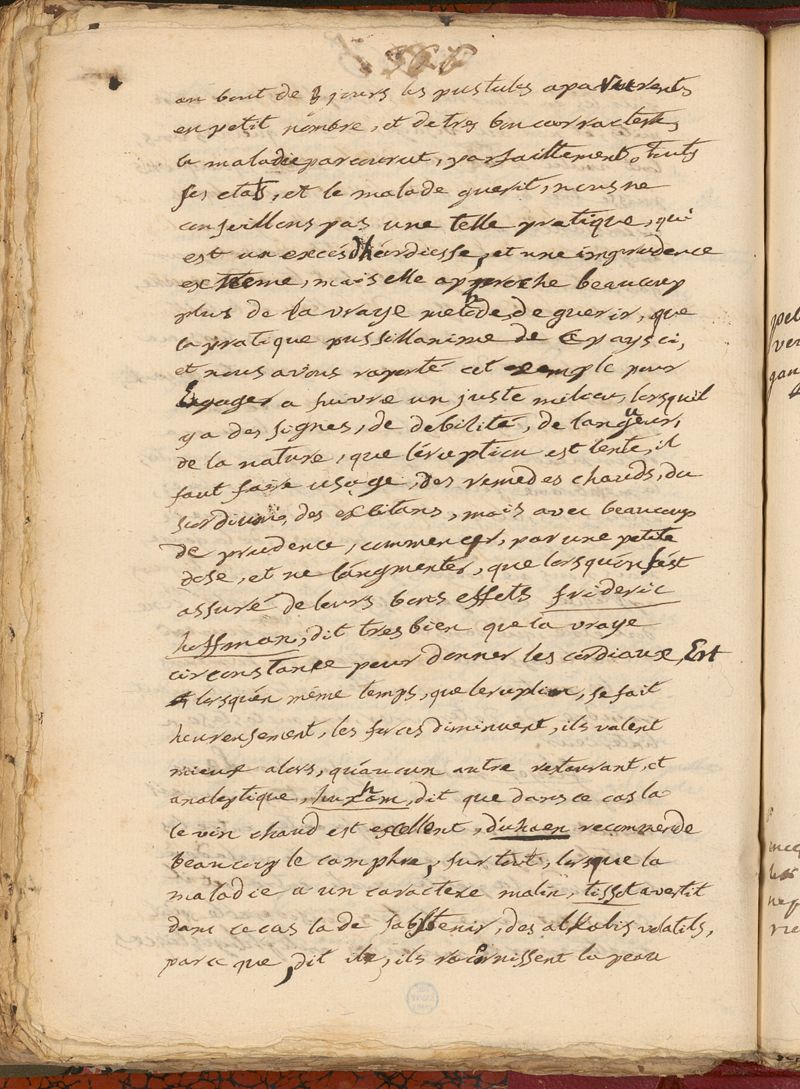 au bout de 3 jours les pustules aparurents
en petit nombre, et de tres bon carractere,
la maladie parcourut, parfaittement, touts
ses etats, et le malade guerit, nous ne
conseillons pas une telle pratique, qui
est un excés d'hardiesse, et une imprudence
extteme, mais elle approche beaucoup
plus de la vraye methode, de guerir, que
la pratique pusillanime de ce pays ci,
et nous avons raporté cet exemple pour
Engager a suivre un juste milieu, lorsquil
ya des signes, de debilité, de langueur,
de la nature, que l'éruption est lente, il
faut faire usage, des remedes chauds, du
scordium, des exitans, mais avec beaucoup
de prudence, commencer, par une petite
dose, et ne l'augmenter, que lorsqu'on s'est
assuré de leurs bons effets frideric
hoffman, dit tres bien que la vraye
circonstance pour donner les cordiaux, Est
lorsqu'en même temps, que leruption, se fait
heureusement, les forces diminuent, ils valent
mieux alors, qu'aucun autre restaurant, et
analeptique, huxham, dit que dans ce cas la
le vin chaud est excellent, d'uhaen recommende
beaucoup le camphre, sur tout, lorsque la
maladie a un caractere malin, tissot avertit
dans ce cas la de sabstenir, des alkalis volatils,
parce que, dit il, ils racornissent la peau